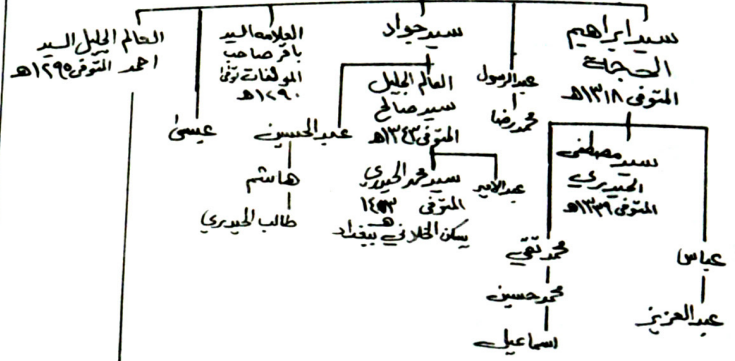 سيد ابراهيم
الحجة
المتوفى ١٣١٨هـ
سيد مصطفى
الحيدري
المتوفى ١٣٣٩هـ
عباس
عبدالعزيز
محمد تقي
محمد حسين
اسماعيل
عبدالرسول
محمد رضا
سيد جواد
العالم الجليل
سيد صالح
المتوفى ١٣٤٣هـ
عبدالامير
سيد محمد الحيدري
المتوفى ١٤٥٣
هـ
يسكن الخلاني ببغداد
عبدالحسين
هاشم
طالب الحيدري
العلامه السيد
باقر صاحب
المولفات توفى
١٢٩٠هـ
عيسى
العالم الجليل السيد
احمد المتوفى ١٢٩٥هـ